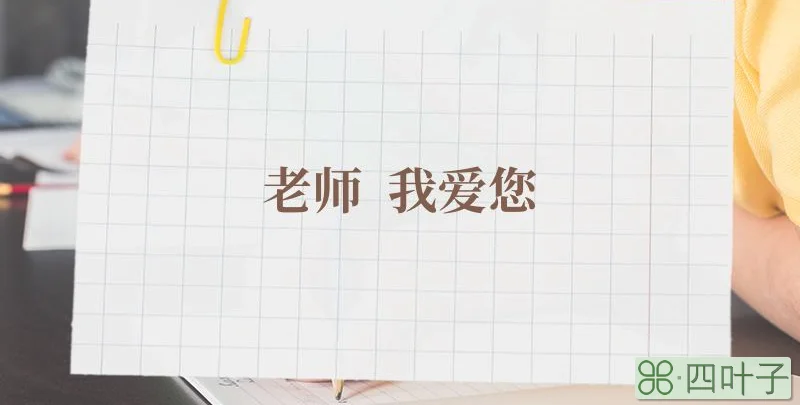 老师 我爱您
⌘·四叶子